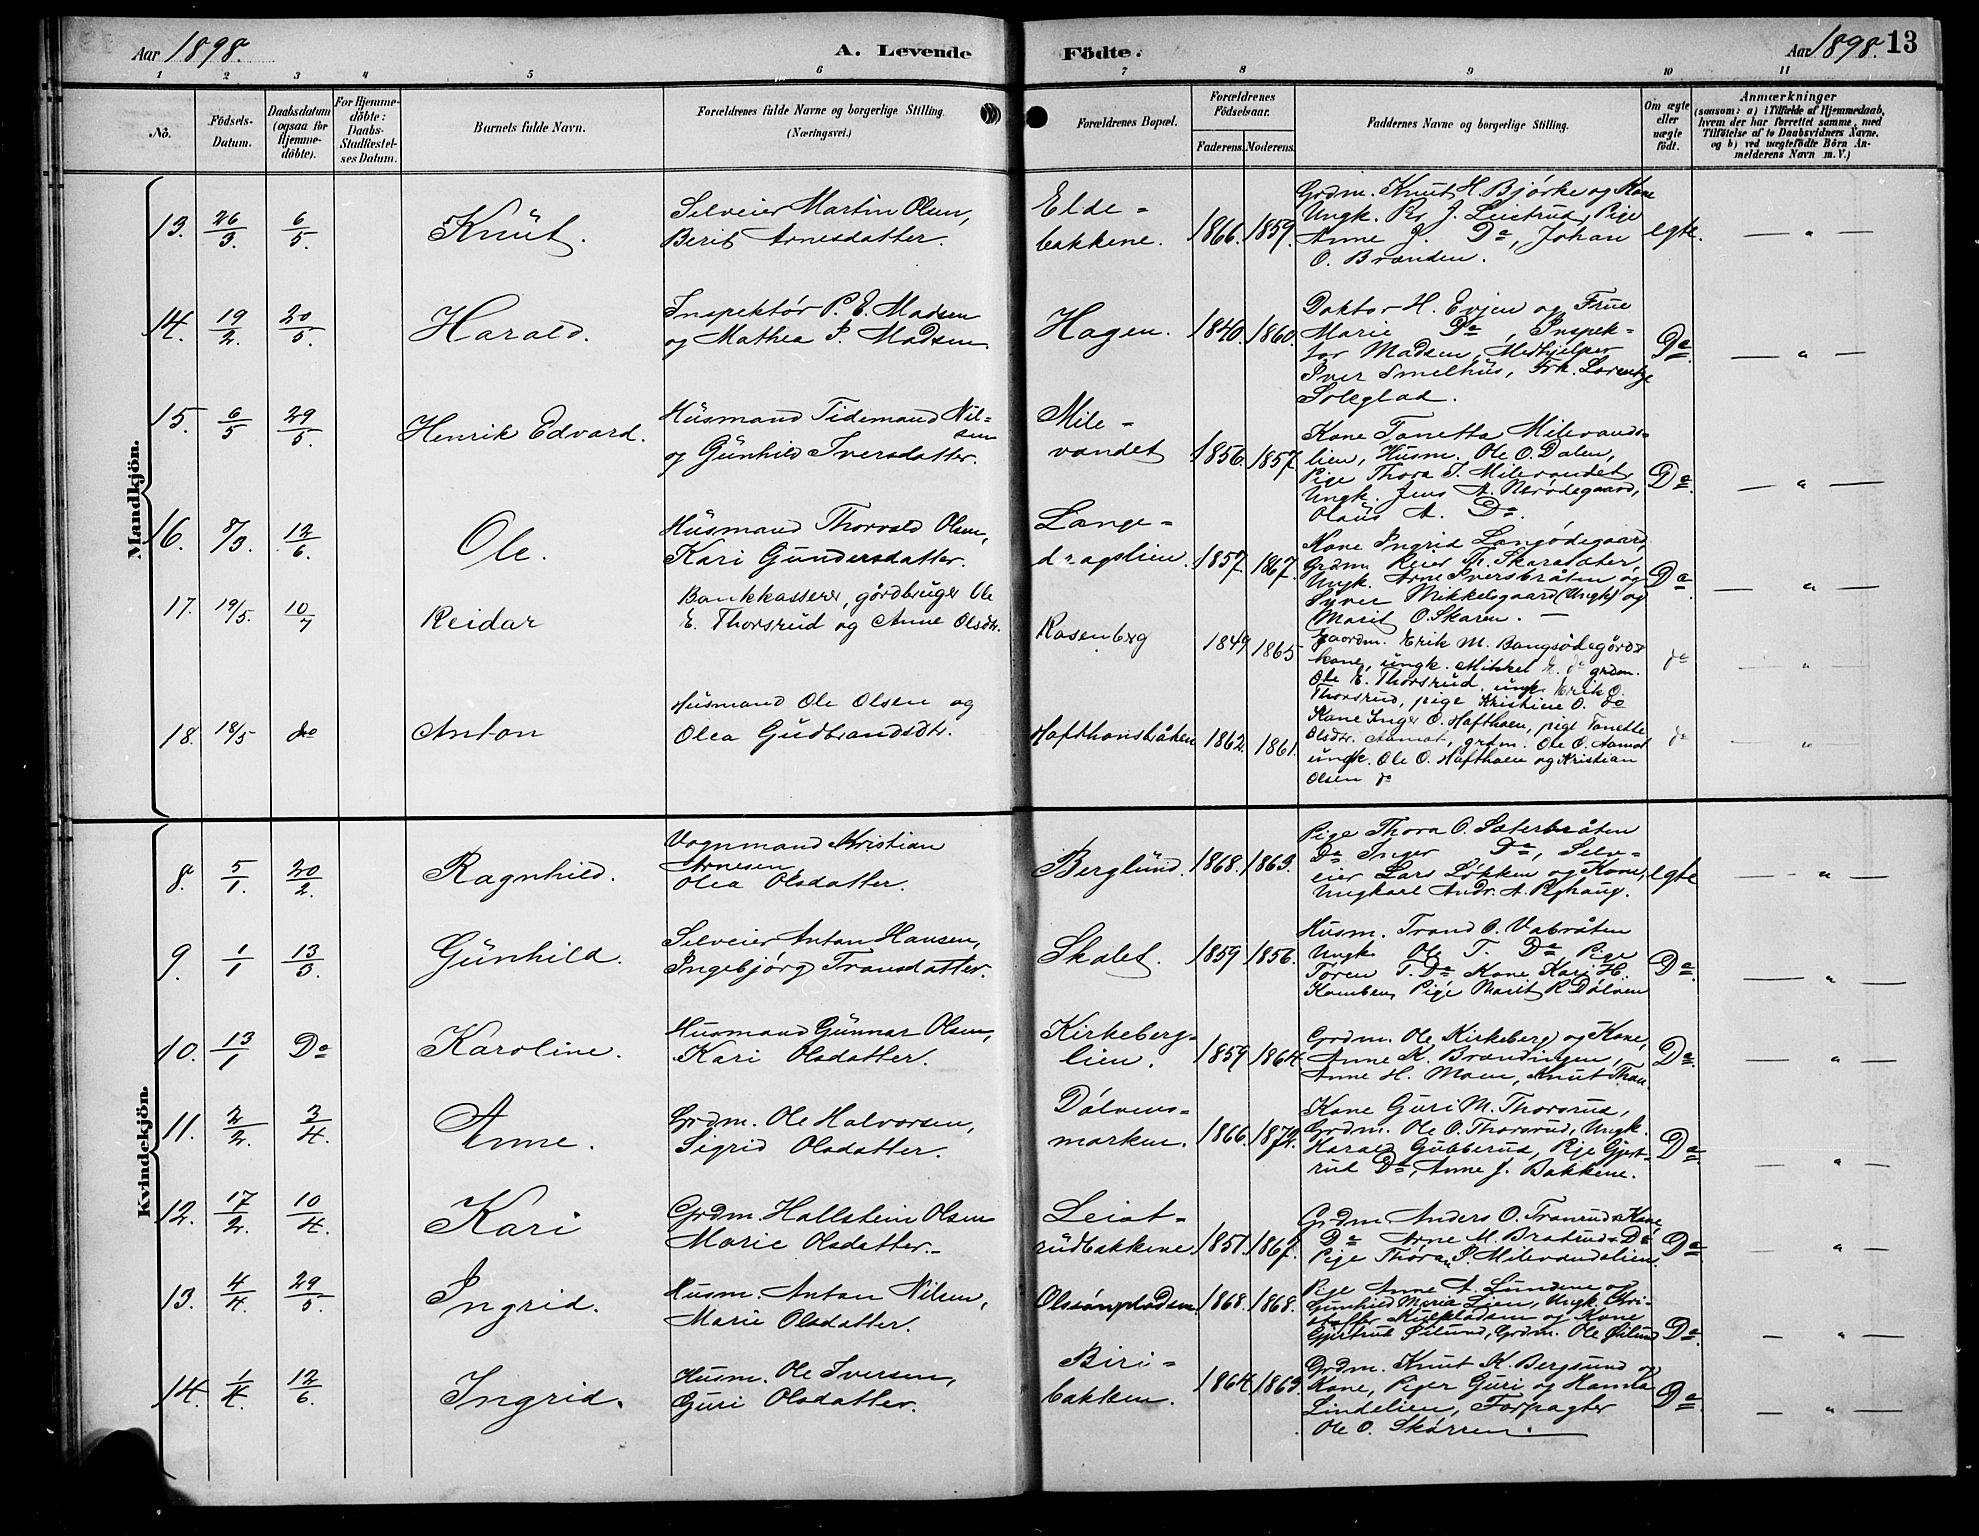 Aar 1898. A. Levende Födte. Aar 1898. 13
1 2 3 4 5 6 7 8 9 10 11
No.
Födsels-Datum.
Daabsdatum (ogsaa for Hjemmedöbte).
For Hjemmedöbte: Daabs-Stadfæstelses Datum.
Barnets fulde Navn.
Forældrenes fulde Navne og borgerlige Stilling.
(Næringsvei.)
Forældrenes Bopæl.
Forældrenes Födselsaar.
Faderens. Moderens.
Faddernes Navne og borgerlige Stilling.
Om ægte eller uægte födt.
Anmærkninger
(saasom: a) i Tilfælde af Hjemmedaab,
hvem der har forrettet samme, med
Tilföielse af to Daabsvidners Navne,
og b) ved uægtefödte Börn An-
melderens Navn m. V.)
Mandkjön.
13. 26/3. 6/5. Knut.
Selveier Martin Olsen,
Berit Arnesdatter.
Elde-
bakkene. 1866. 1859.
Grdm. Knut H. Bjørke og Kone
Ungk. Kr J. Leistrud, Pige
Anne J. Do, Johan
O. Brænden.
egte. — " —
14. 19/2. 20/5. Harald.
Inspektør P. E. Madsen
og Mathea P. Madsen
Hagen. 1840. 1860.
Doktor H. Evjen og Frue
Marie Do, Inspek-
tør Madsen, Medhjelper
Iver Smelhus, Frk. Lorentze
Soleglad.
Do. — " —
15. 6/5 29/5. Henrik Edvard.
Husmand Tidemand Nil-
sen
og Gunhild Iversdatter.
Mile-
vandet 1856. 1857.
Kone Tanetta Milevands-
lien, Husm. Ole O. Dalen,
Pige Thora T. Milevandet,
Ungk. Jens A. Nerødegaard,
Olaus A. Do.
Do. — " —
16. 8/3. 12/6. Ole.
Husmand Thorvald Olsen,
Kari Gundersdatter.
Lange-
dragslien. 1857. 1867.
Kone Ingrid Langødegaard,
Grdm. Reier Th. Skarasæter,
Ungk. Arne Iversbråten og
Syver Mikkelsgaard (Ungk) og
Marit O. Skaren. —
Do. — " —
17. 19/5. 10/7 Reidar
Bankkasserer, gårdbruger Ole
E. Thorsrud og Anne Olsdtr.
Rosenberg 1849 1865
Gaardm. Erik M. Bangsødegård
kone, ungk. Mikkel E. do grdm.
Ole E. Thorsrud, ungk. Erik O.
Thorsrud, pige Kristine O. do
do — " —
18. 18/5 do Anton
Husmand Ole Olsen og
Olea Gudbrandsdtr.
Hafthonsbråten 1862. 1861.
Kone Inger O. Hafthoen, pige Tanette
Olsdtr. Aamot, grdm. Ole O. Aamot
ungk. Ole O. Hafthoen og Kristian
Olsen do
do — " —
Kvindekjön.
8. 5/1. 20/2. Ragnhild.
Vognmand Kristian
Arnesen
Olea Olsdatter.
Berglund. 1868. 1863.
Pige Thora O. Sæterbråten
Do Inger Do, Selv-
eier Lars Løkken og Kone,
Ungkarl Andr. A. Ryhaug.
egte — " —
9. 1/1 13/3. Gunhild.
Selveier Anton Hansen,
Ingebjørg Transdatter.
Skolet. 1859 1856.
Husm. Trand O. Vabråten
Ungk Ole T. Do, Pige
Toren T. Do Kone Kari H.
Kamben, Pige Marit R. Dølven
Do. — " —
10. 13/1 Do Karoline.
Husmand Gunnar Olsen,
Kari Olsdatter.
Kirkeberg-
lien. 1859 1864.
Grdm. Ole Kirkeberg og Kone,
Anne K. Brændingen,
Anne H. Moen, Knut Thon
Do. — " —
11. 2/2. 3/4. Anne.
Grdm. Ole Halvorsen,
Sigrid Olsdatter.
Dølvens-
marken. 1866. 1874.
Kone Guri M. Thorsrud,
Grdm. Ole O. Thorsrud, Ungk.
Harald Gubberud, Pige Gjert-
rud Do, Anne J. Bakkene.
Do. — " —
12. 17/2. 10/4. Kari
Grdm. Hallstein Olsen
Marie Olsdatter.
Leist-
rudbakkene 1851. 1867.
Grdm Anders O. Tranrud & Kone
Do Arne M. Bratrud Do
Pige Thora P. Milevandslien.
Do. — " —
13. 4/4. 29/5. Ingrid.
Husm. Anton Nilsen,
Marie Olsdatter.
Olssønpladsen. 1868. 1868.
Pige Anne A. Lundene og
Gunhild Marie Lien, Ungk. Kri-
stoffer Kulpladsen og Kone
Gjertrud Øilund, Grdm. Ole Øilund
Do. — " —
14. 1/4. 12/6. Ingrid.
Husm. Ole Iversen,
Guri Olsdatter.
Biri-
bakken. 1864. 1863.
Grdm. Knut K. Bergsund og
Kone, Piger Guri og Hanna
Lindelien, Forpagter
Ole O. Skørren.
Do. — " —